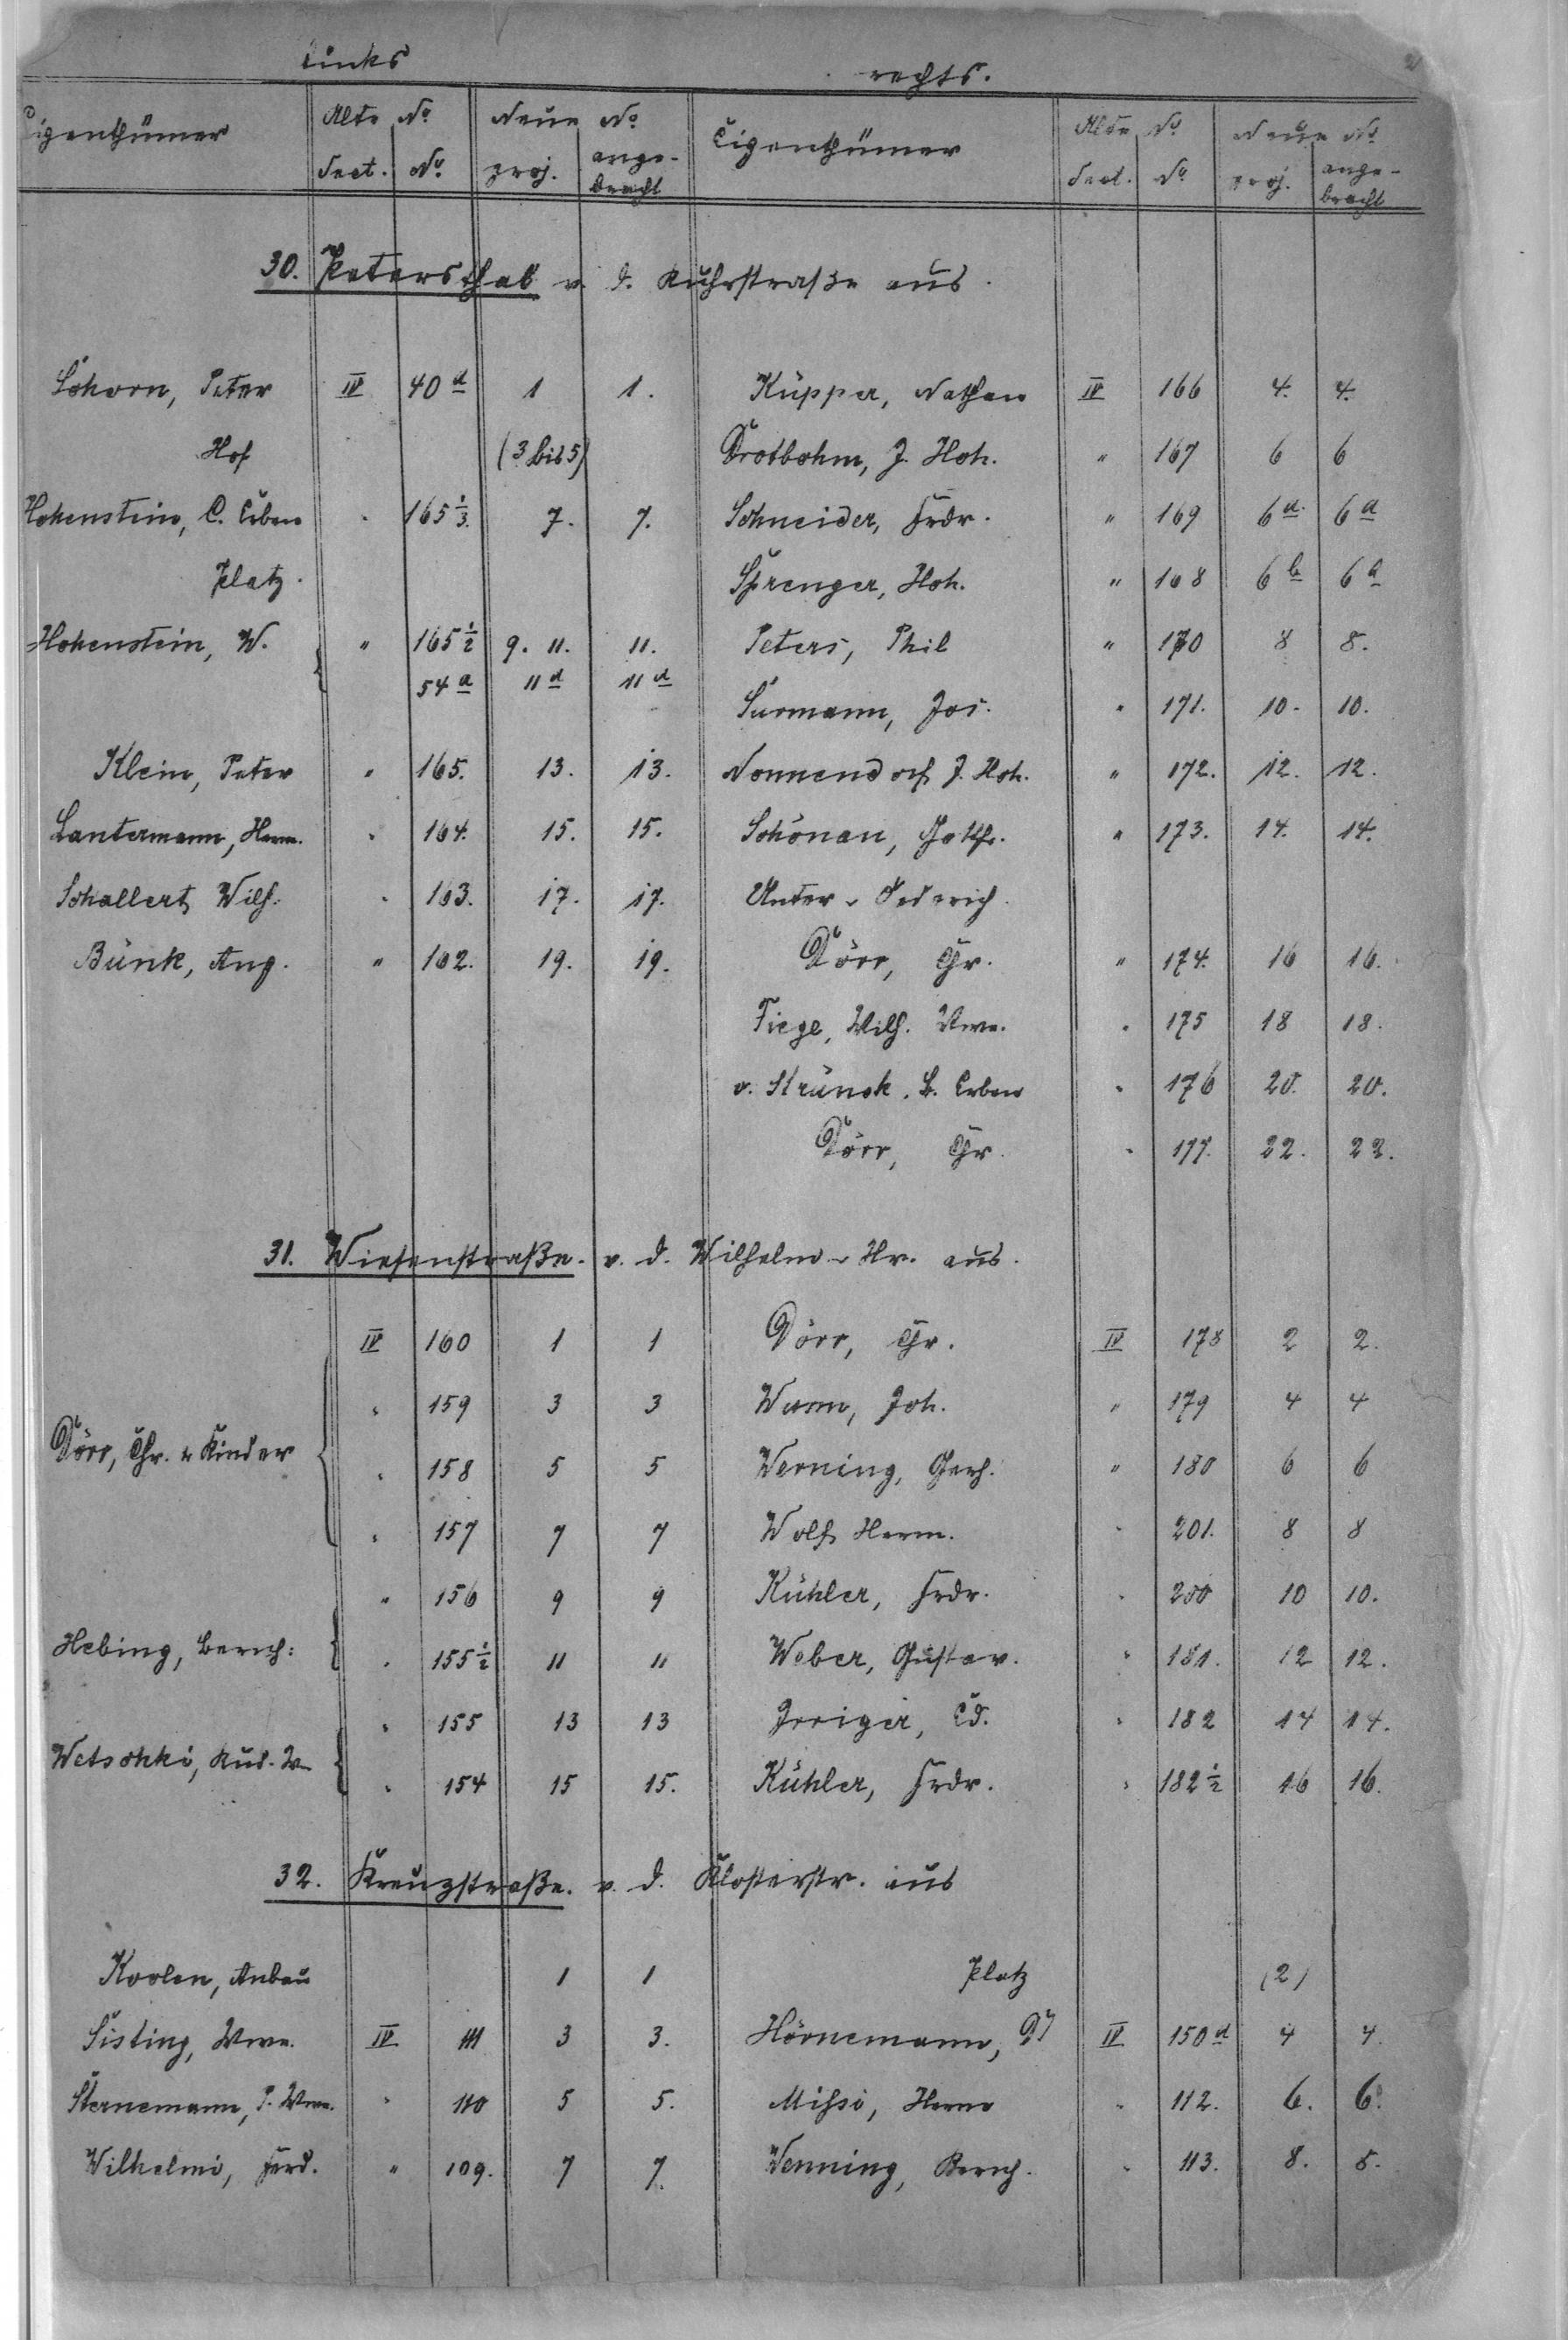 links rechts.
Eigenthümer Alte No Neue No Eigenthümer Alte No Neue No
Sect. No proj. ange-bracht Sect. No proj. ange-bracht
30. Petersthal v. d. Ruhrstraße aus.
Schorn, Peter IV 40 d 1 1. Küpper, Nathan IV 166 4. 4.
Hof (3 bis 5) Drotbohm, J. Hch. " 167 6 6
Hohenstein, C. Erben " 165 1/3. 7. 7. Schneider, Frdr. " 169 6 a. 6 a
Platz. Sprenger, Hch. " 168 6 b 6 b
Hohenstein, W. " 165 1/2 9. 11. 11. Peters, Phil " 170 8 8.
54 a 11 a 11 a
Surmann, Jos. " 171. 10. 10.
Klein, Peter " 165. 13. 13. Nonnendorf J. Hch. " 172. 12. 12.
Lantermann, Herm. " 164. 15. 15. Schönau, Gottfr. " 173. 14. 14.
Schallert, Wilh. " 163. 17. 17. Unter-Federich.
Bünk, Aug. " 162. 19. 19. Dörr, Chr. " 174. 16 16.
Tiege, Wilh. Wwe. " 175 18 18.
v. Strünck. L. Erben " 176 20. 20.
Dörr, Chr. " 177. 22. 22.
31. Wiesenstraße. v. d. Wilhelm-Str. aus.
IV 160 1 1 Dörr, Chr. IV 178 2 2.
" 159 3 3 Wurm, Joh. " 179 4 4
Dörr, Chr. u Kinder " 158 5 5 Werning, Gerh. " 180 6 6
" 157 7 7 Wolf Herm. " 201. 8 8
" 156 9 9 Kühler, Frdr. " 200 10 10.
Hebing, Bernh: " 155 1/2 11 11 Weber, Gustav. " 181. 12 12.
" 155 13 13 Irriger, Ed. " 182 14 14.
Wetschki, Rud. Ww
" 154 15 15. Kühler, Frdr. " 182 1/2 16 16.
32. Kreuzstraße. v. d. Klosterstr. aus
Koolen, Anbau 1 1 Platz (2)
Sisting, Wwe. IV 111 3 3. Hörnemann, IV 150 d 4 4.
Sternemann, P. Wwe. " 110 5 5. Herm " 112. 6. 6.
Wilhelmi, Ferd. " 109. 7 7. Wenning, Bernh. " 113. 8. 8.